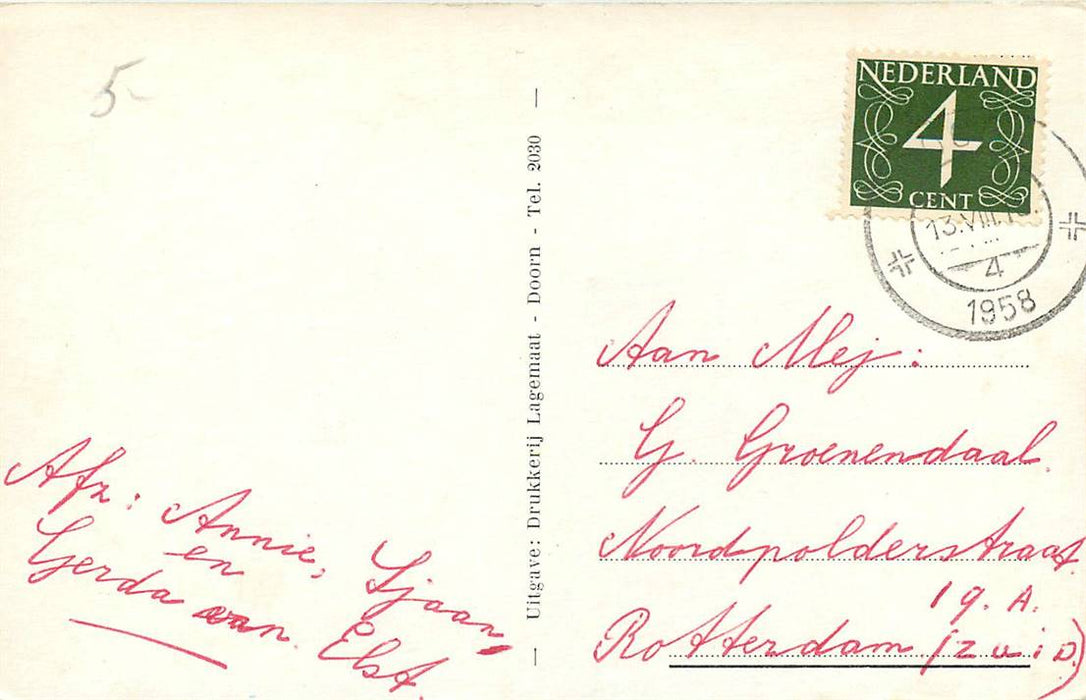 5-
Afz: Annie, Sjaan,
en
Gerda van Elst.
Uitgave: Drukkerij Lagemaat - Doorn - Tel. 2030
NEDERLAND
4
CENT
13.VIII.
4
1958
Aan Mej:
G. Groenendaal.
Noordpolderstraat
19. A.
Rotterdam (zuid)